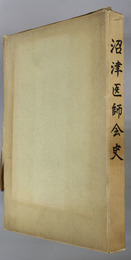 沼津医師会史